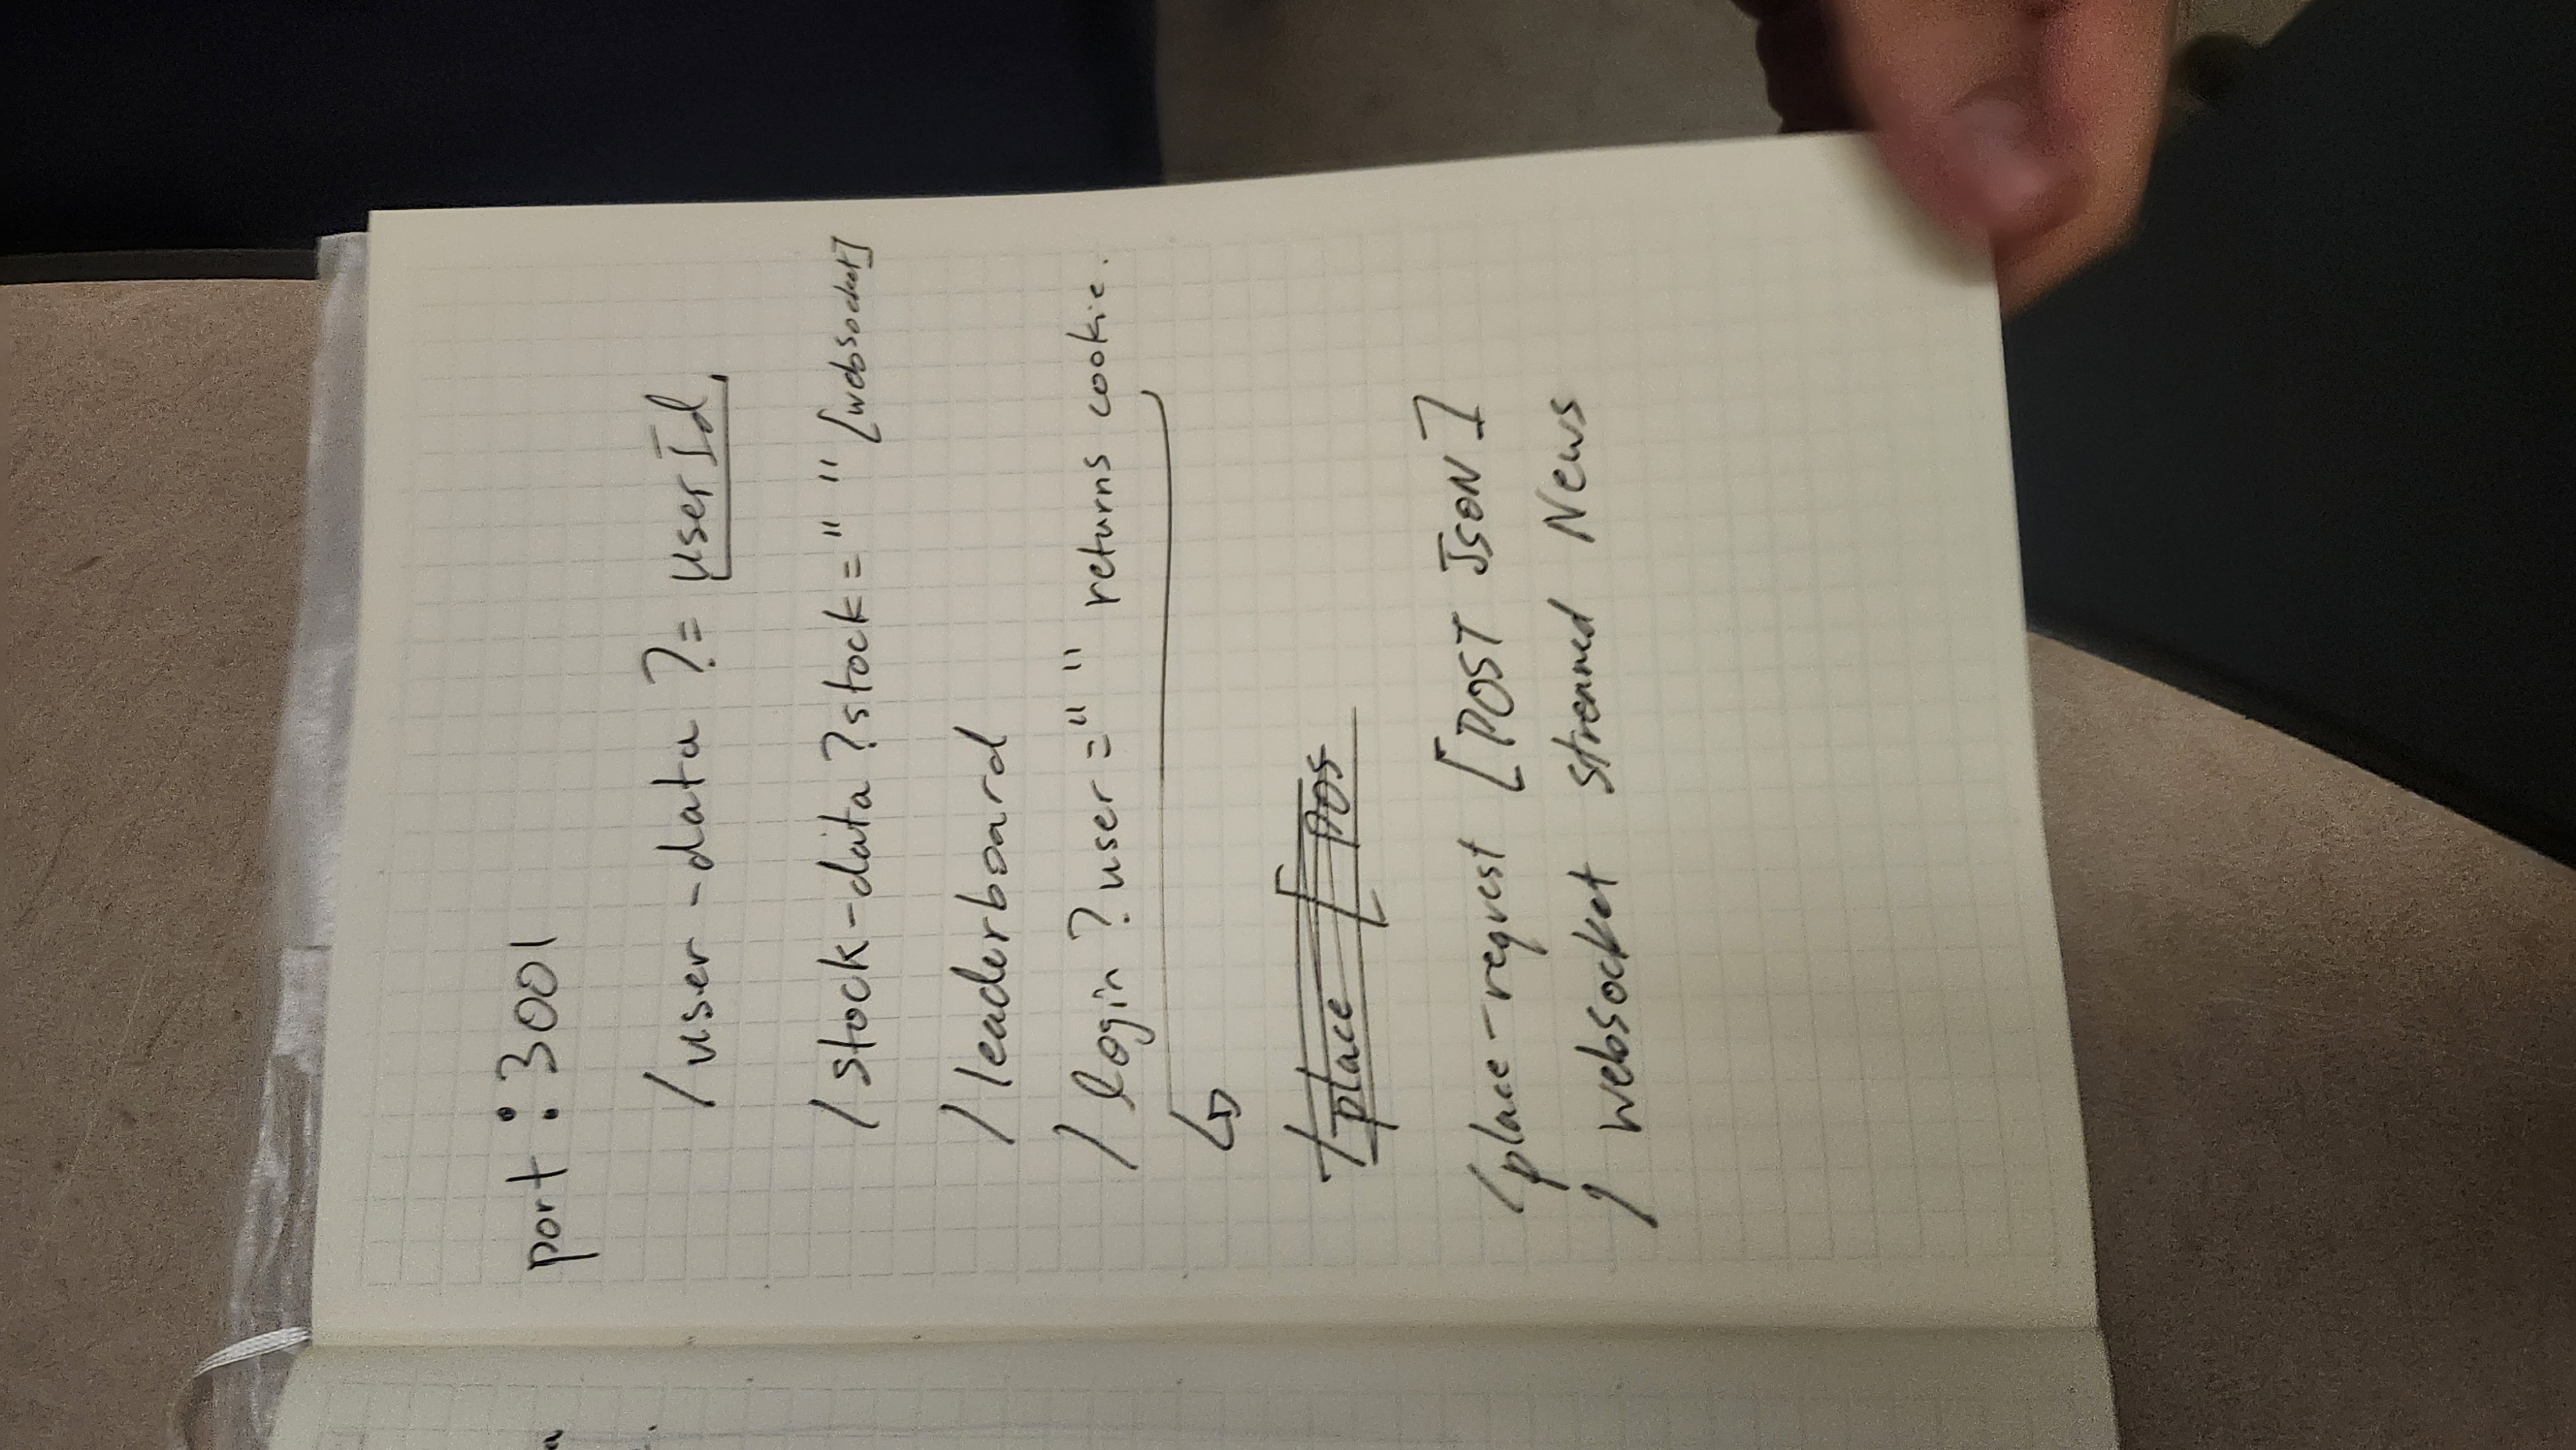 port :3001
/user-data ?= userId
/stock-data ?stock=" " [websocket]
/leaderboard
/login ?user=" " returns cookie.
/place [ POS
/place-request [POST JSON]
/ websocket streamed News